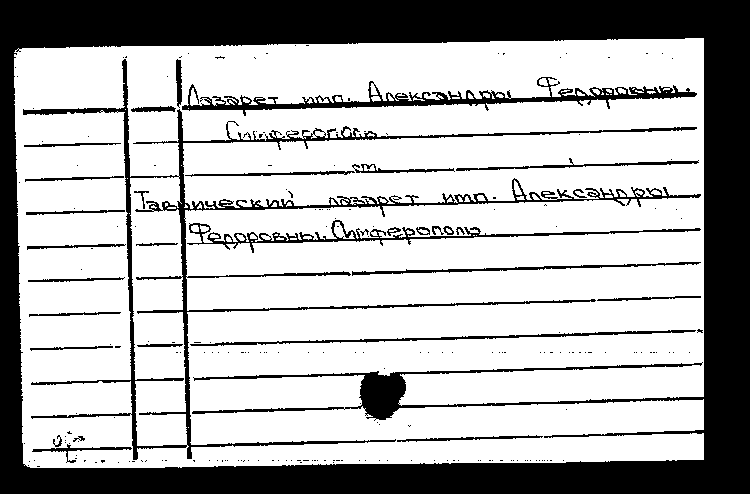 Лазарет имп. Александры Федоровны.
Симферополь
см.
Таврический лазарет имп. Александры
Федоровны. Симферополь